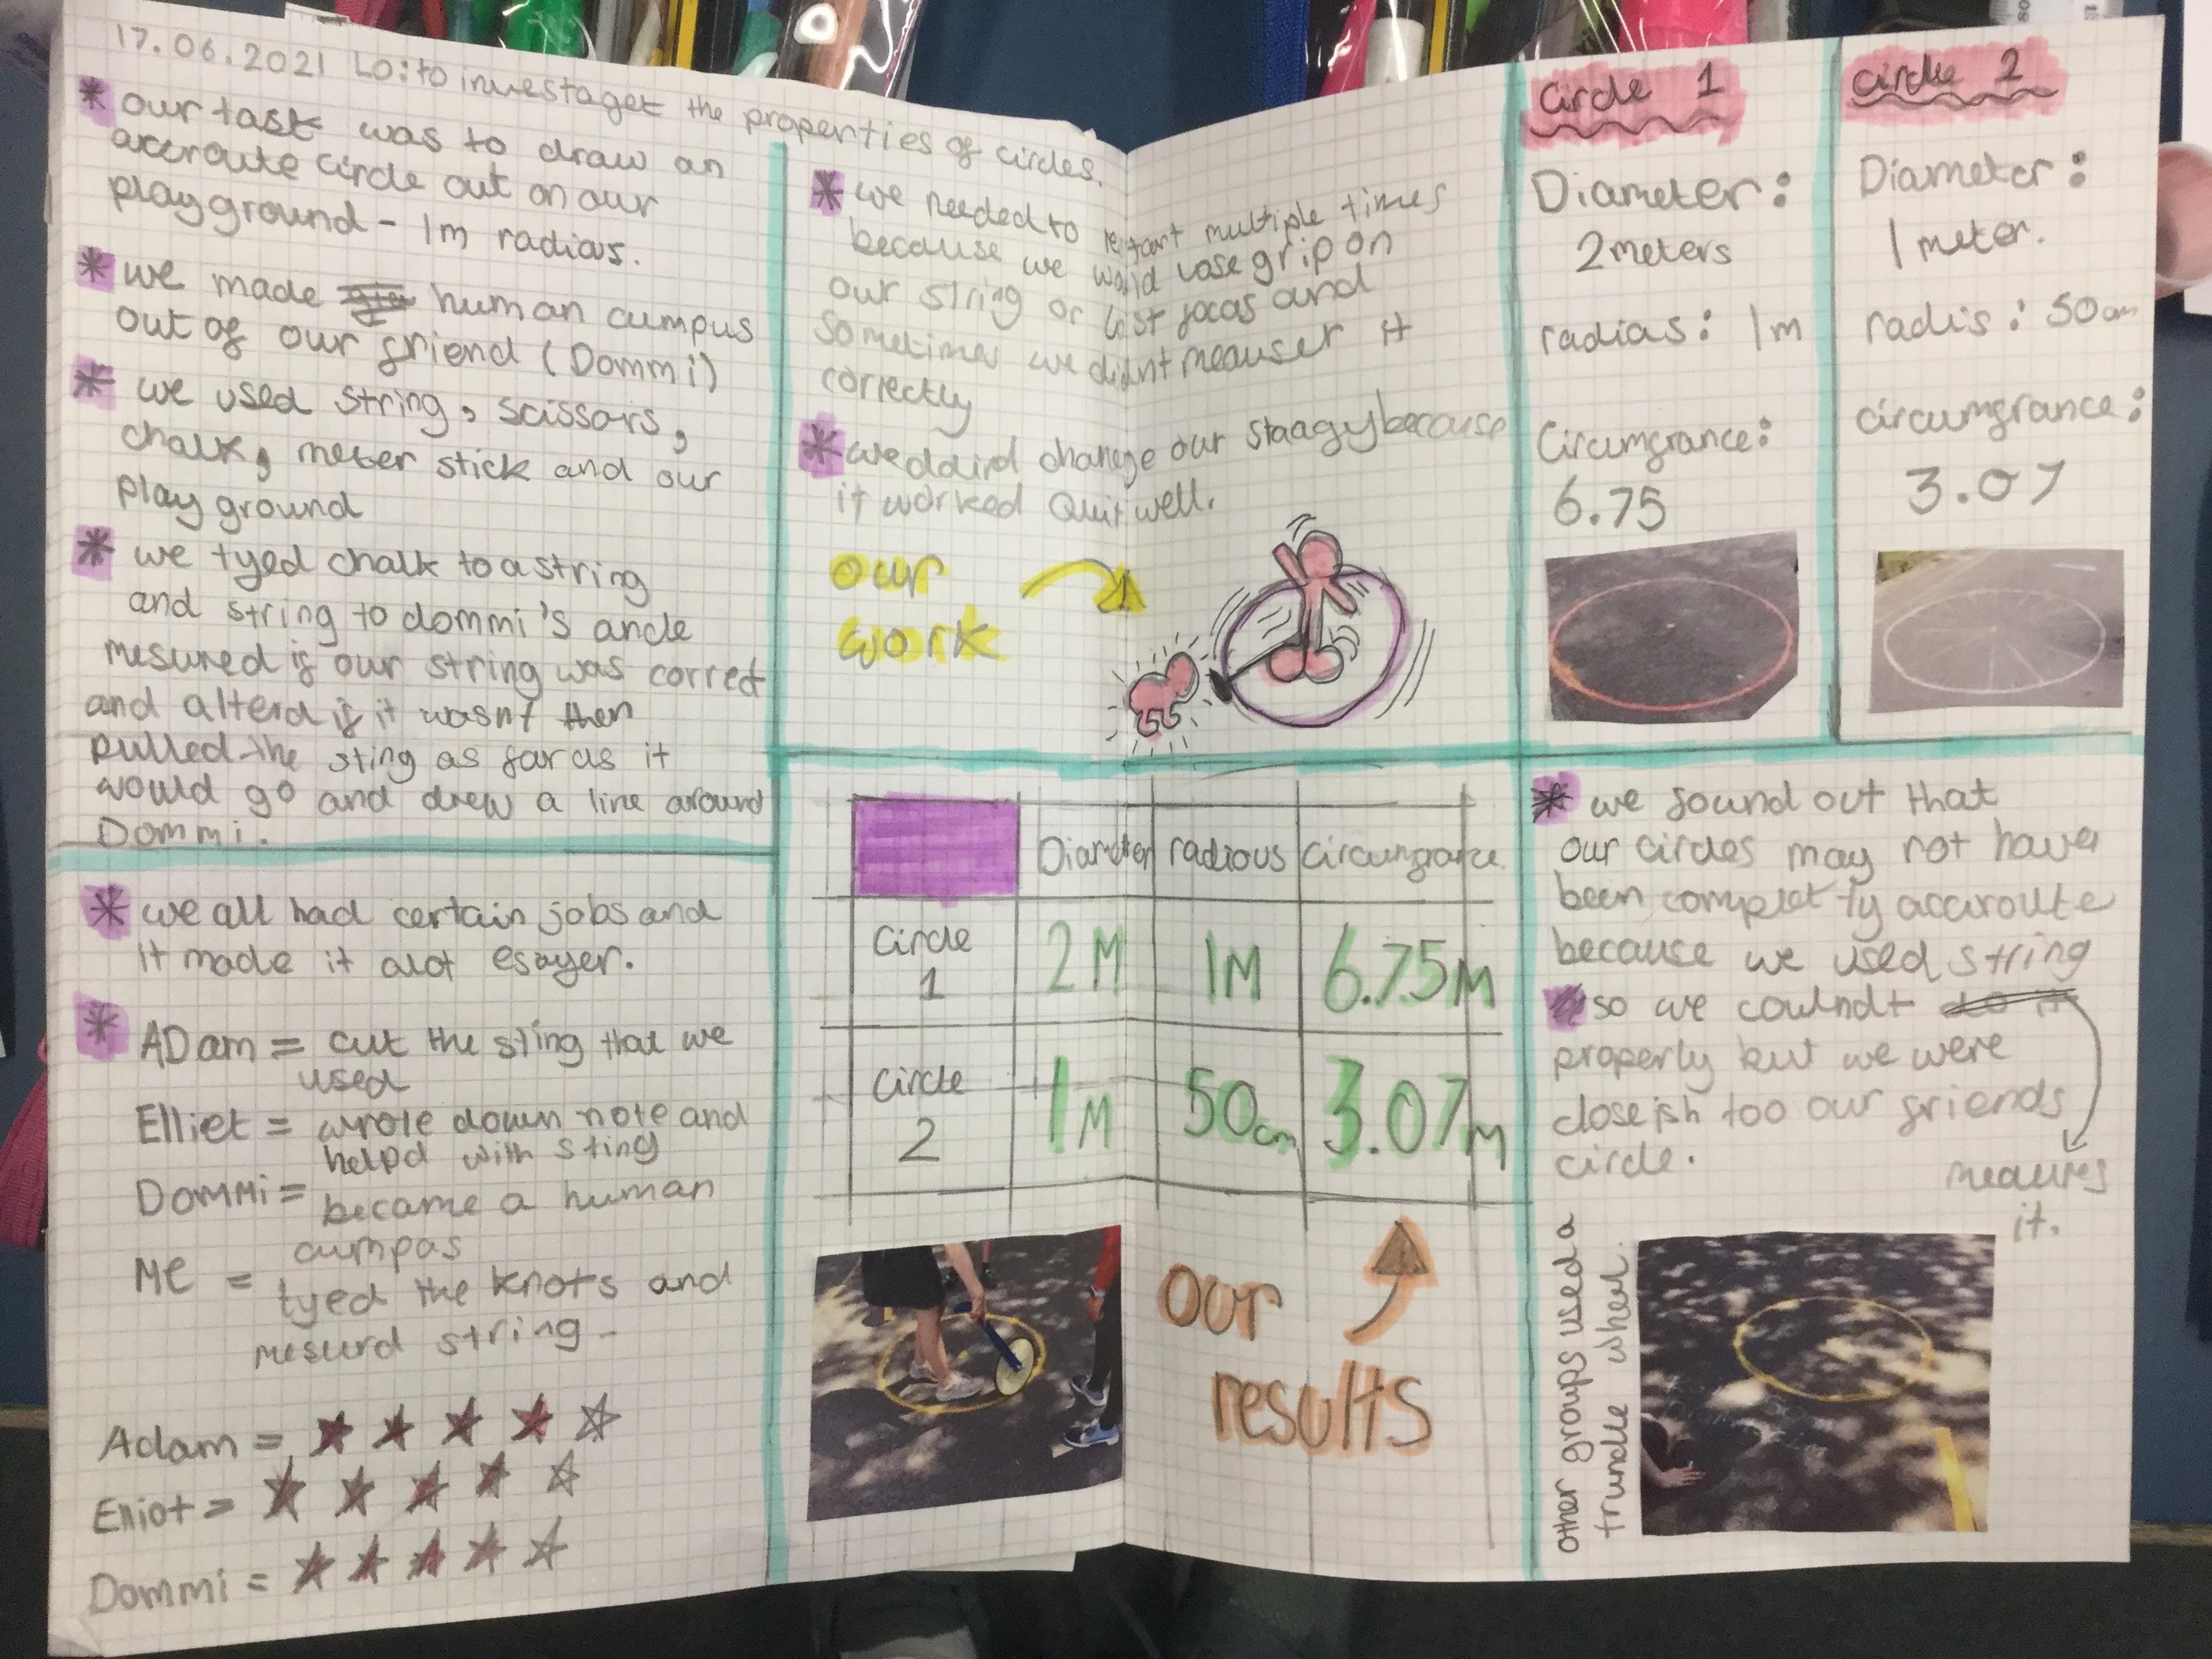 17.06.2021 LO: to investaget the properties of circles.
* our task was to draw an
accroute circle out on our
playground - 1m radias.
* we made human cumpus
out of our friend (Dommi)
* we used string, scissors,
chalk, meter stick and our
play ground
* we tyed chalk to a string
and string to dommi's ancle
mesured if our string was correct
and alterd if it wasnt then
pulled the sting as far as it
would go and drew a line around
Dommi.
* we all had certain jobs and
it made it alot esayer.
* ADam = cut the sting that we
used
Elliet = wrote down note and
helpd with sting
Dommi = became a human
cumpas
Me = tyed the knots and
mesurd string -
Adam =
Elliot =
Dommi =
* we needed to restart multiple times
because we would lose grip on
our string or lost focas and
sometimes we didnt meauser it
correctly
* we change our because
it worked Quit well.
our
work
Circle 1
Diameter:
2meters
radias: 1m
Circumfrance:
6.75
circle 2
Diameter:
1 meter.
radis: 50cm
circumfrance:
3.07
Diameter radious circumfrance
Circle
1
2M 1M 6.75M
circle
2
1M 50cm 3.07m
our
results
* we found out that
our circles may not have
been completly accroute
because we used string
so we coulndt do it
properly but we were
close ish too our friends
circle.
it.
other groups used a
trundle wheel.